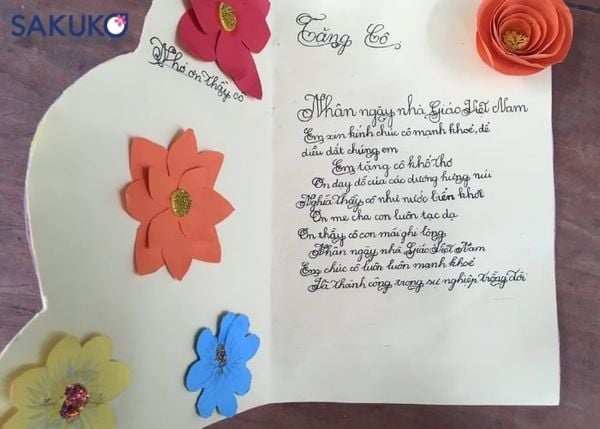 SAKUKO
Nhớ ơn thầy cô
Tặng Cô
Nhân ngày nhà Giáo Việt Nam
Em xin kính chúc cô mạnh khoẻ, để
dìu dắt chúng em
Em tặng cô khổ thơ
Ơn dạy dỗ của các dương hưng núi
Nghĩa thầy cô như nước biển khơi
Ơn mẹ cha con luôn tạc dạ
Ơn thầy cô con mãi ghi lòng
Nhân ngày nhà Giáo Việt Nam
Em chúc cô luôn luôn mạnh khoẻ
Và thành công trong sự nghiệp trồng